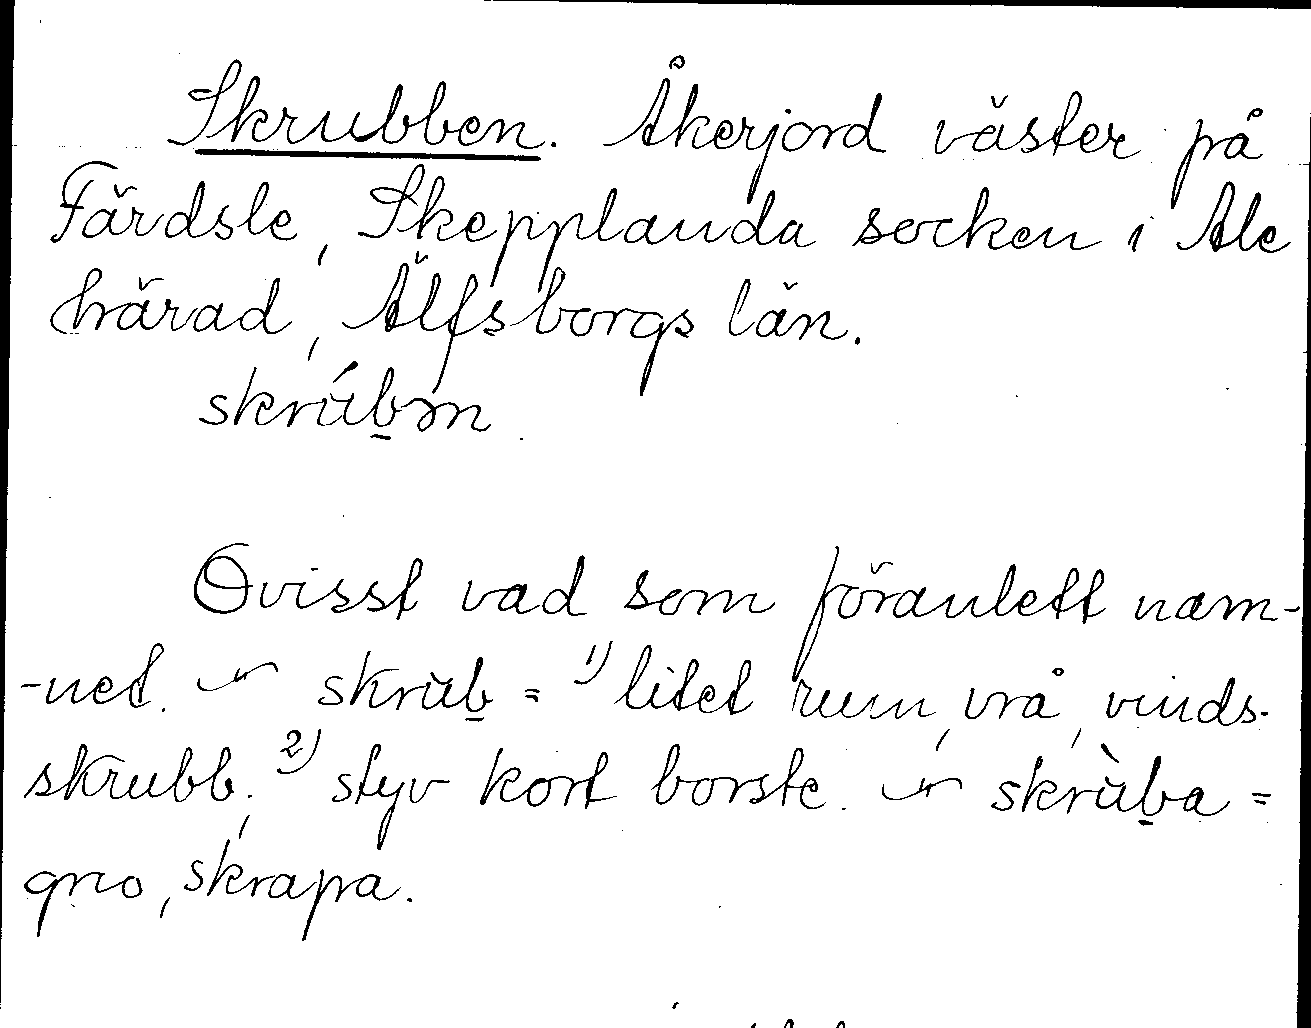 Skrubben. Åkerjord väster på
Färdsle, Skepplanda socken i Ale
härad, Älfsborgs län.
skrúb̲m
Ovisst vad som föranlett nam-
-net. skrùb̲ = 1) litet rum, vrå, vinds-
skrubb; 2) styv kort borste. skrùb̲a =
gno, skrapa.